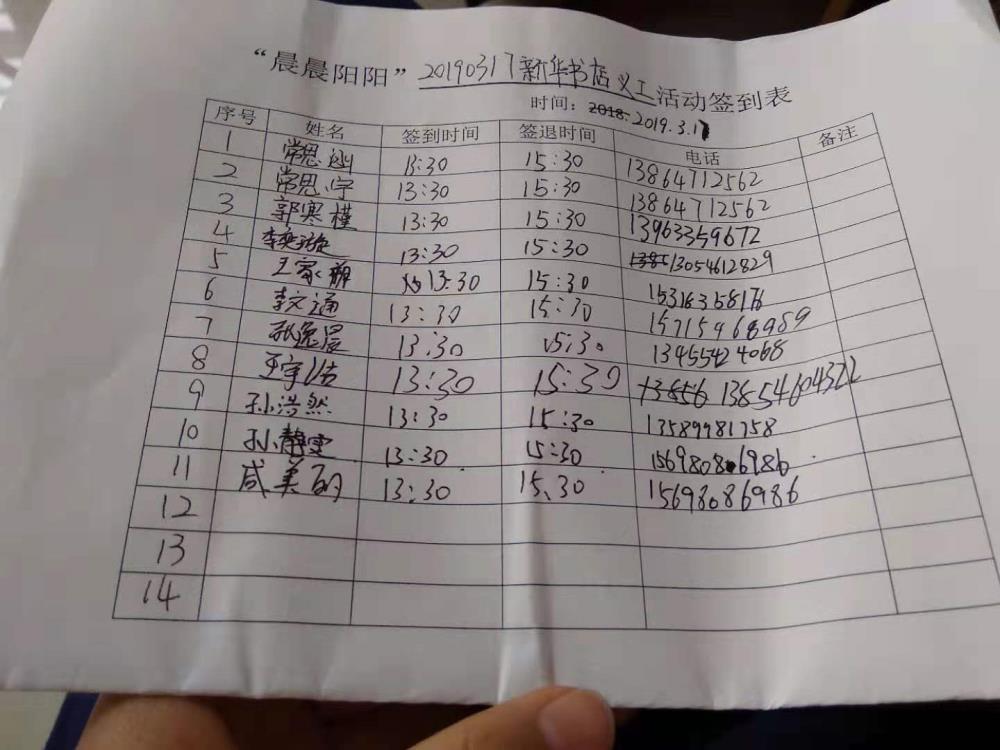 “晨晨阳阳” 20190317新华书店义工活动签到表
时间：2018. 2019.3.17
序号 姓名 签到时间 签退时间 电话 备注
1 常思 13:30 15:30 13864712562
2 常思宇 13:30 15:30 13864712562
3 郭寒模 13:30 15:30 13963359672
4 李奕璇 13:30 15:30 13054612829
5 王家 13:30 15:30 15316358176
6 李文通 13:30 15:30 15715968989
7 张逸晨 13:30 15:30 13455424068
8 王宇洁 13:30 15:30 13856 13854604322
9 孙浩然 13:30 15:30 13589981758
10 孙静雯 13:30 15:30 15698086986
11 咸美丽 13:30 15.30 15698086986
12
13
14